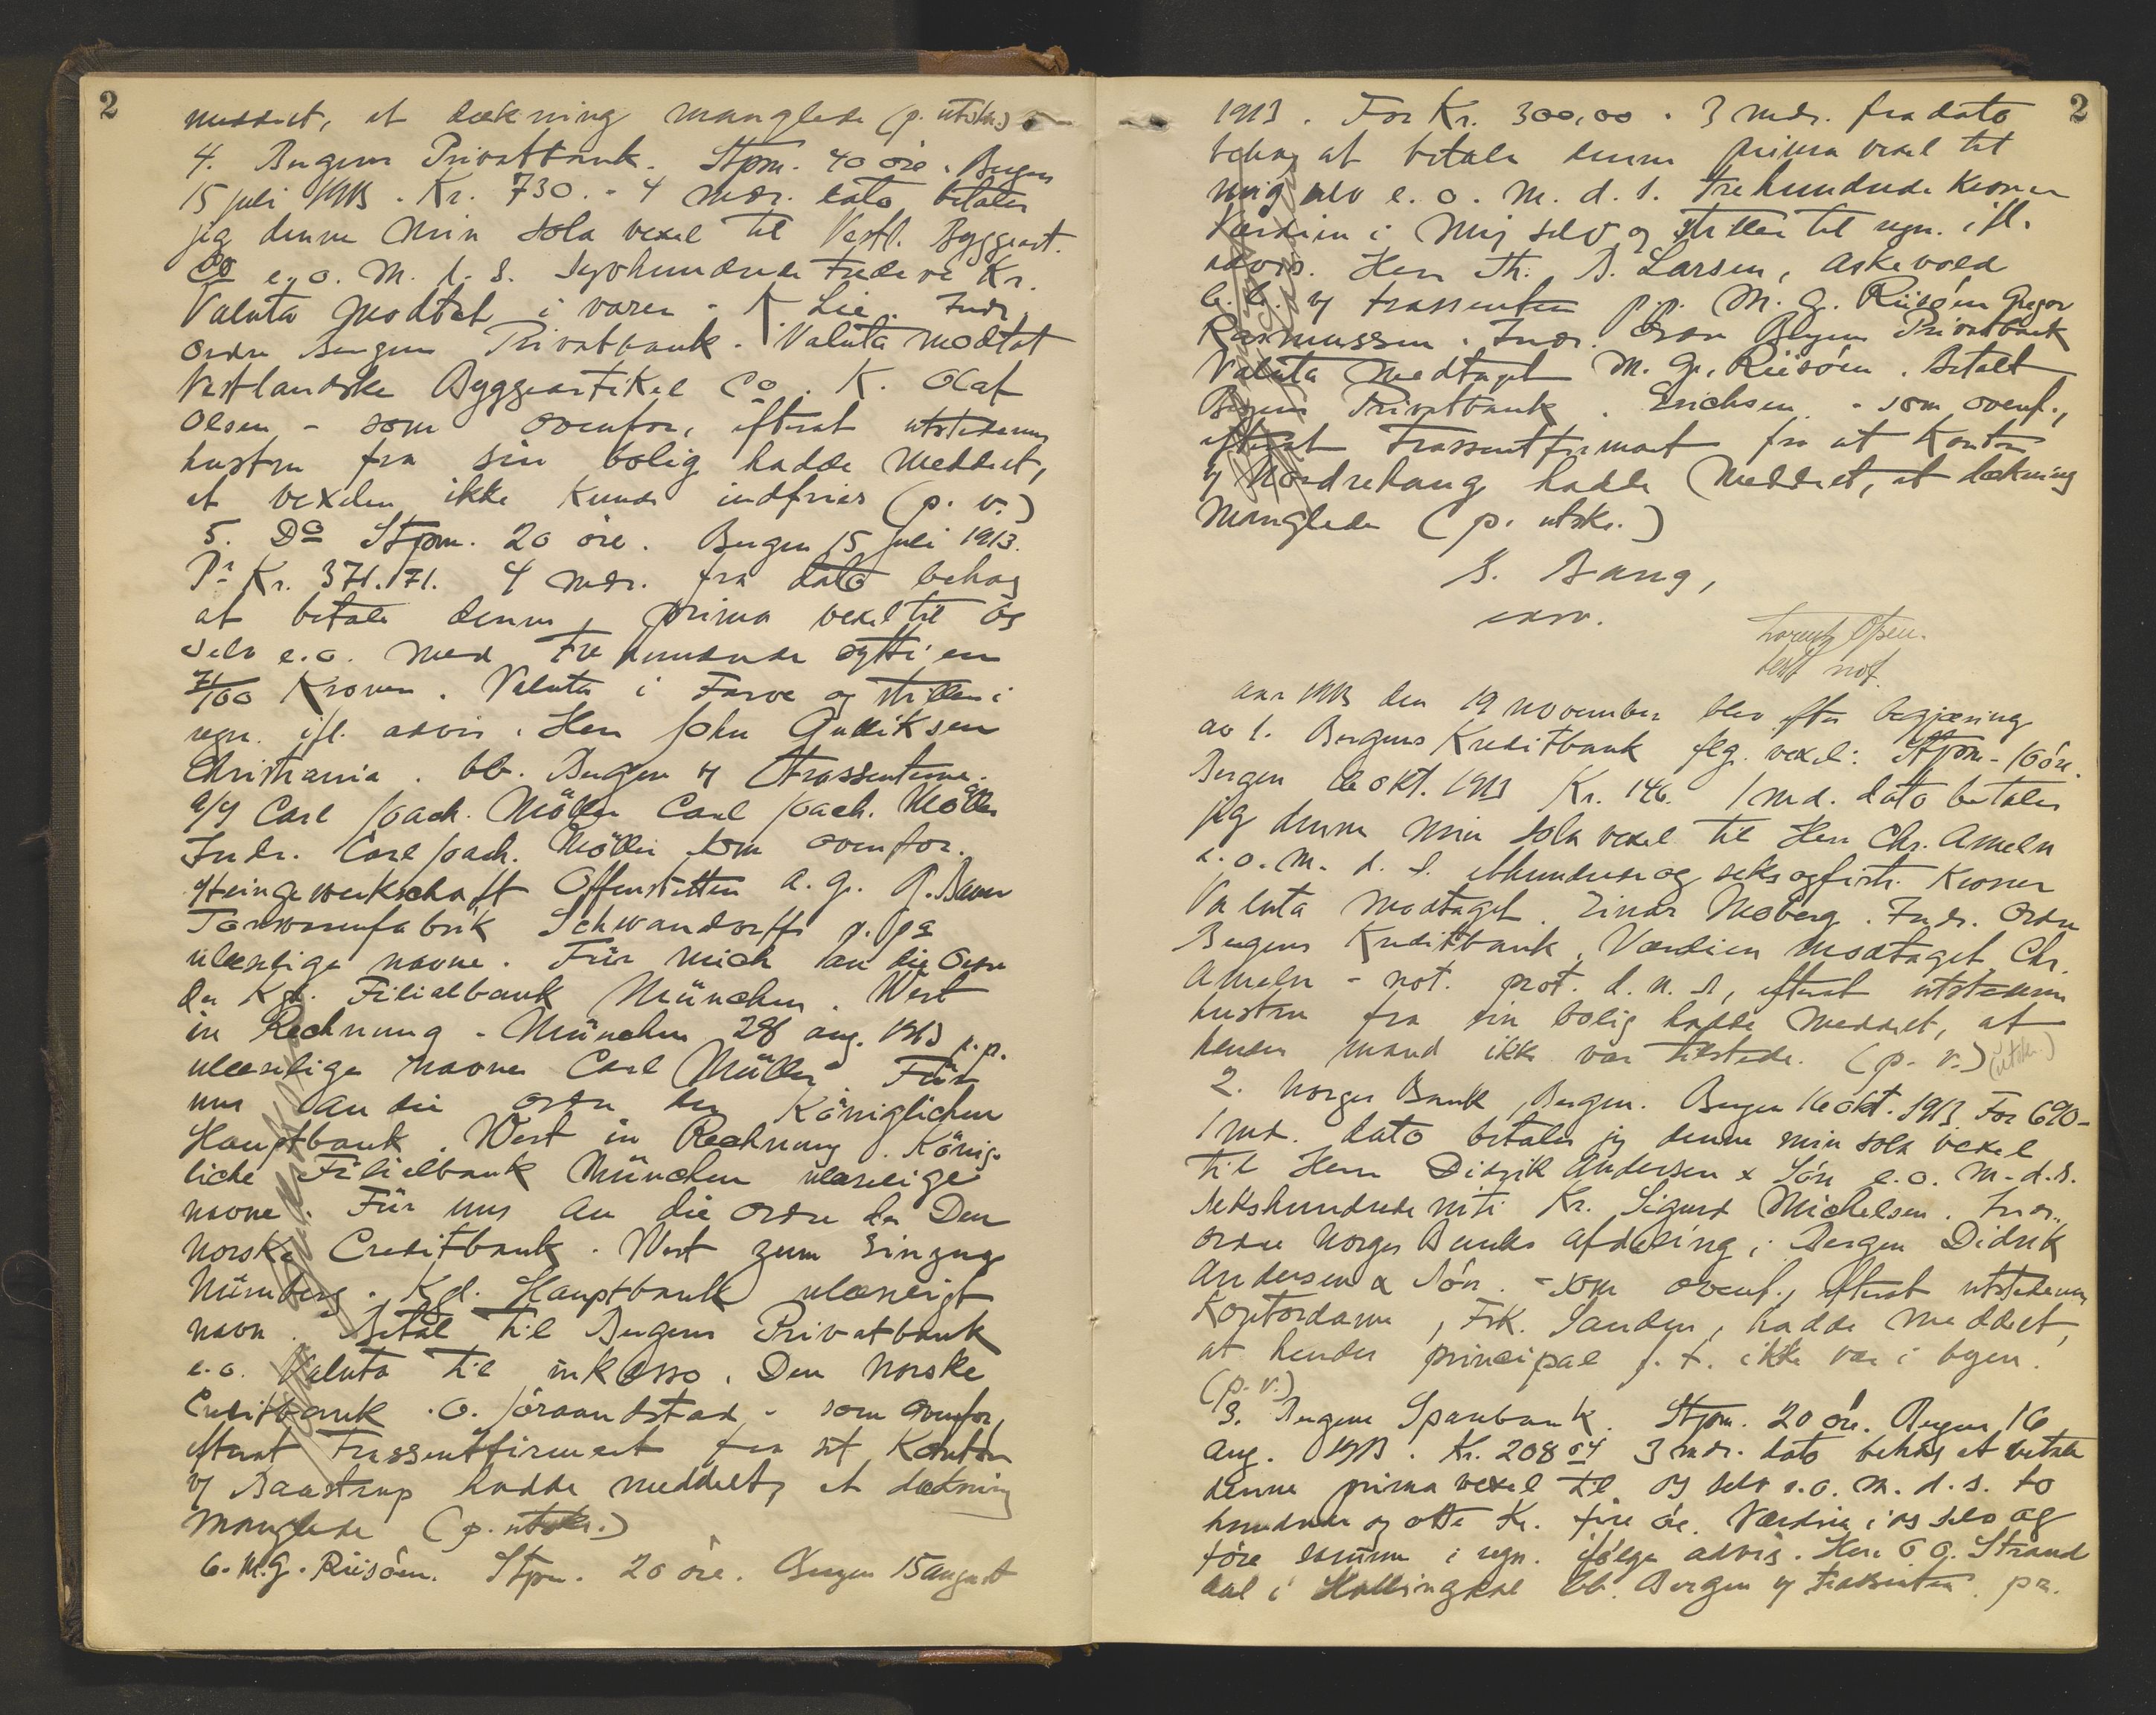 2
meddelt, at dækning manglede (p. utskr.)
4. Bergens Privatbank. Stpm. 40 øre. Bergen
15 juli 1913. Kr. 730.- 4 mdr. dato betaler
jeg denne min sola vexel til Vestl. Byggeart.
Co e. o. m. d. s. Syvhundrede tredeve Kr.
Valuta modtat i varer - K Lie. Indr.
ordre Bergens Privatbank. Valuta modtat
Vestlandske Byggeartikel Co. K. Olaf
Olsen - som ovenfor, efterat utstederens
hustru fra sin bolig hadde meddelt,
at vexelen ikke kunde indfries (p. v.)
5. Do Stpm. 20 øre. Bergen 15 juli 1913.
Pr Kr. 371.71. 4 mdr. fra dato behag
at betale denne prima vexel til os
selv e. o. med tre hundrede sytti en
71/100 Kroner. Valuta i Farve og stilles i
regn. ifl. advis. Herr John Gulliksen
Christiania. bb. Bergen v/ trassenterne.
a/s Carl Joach. Möller Carl Joach. Möller
Indr. Carl Joach. Möller som ovenfor.
Steingewerkschaft Offenstetten A. G.
Tonwarenfabrik Schwandorff p. pa
ulæselige navne. Für mich an die Ordre
der Kgl. Filialbank München. Wert
in Rechnung - München 28 aug. 1913 p.p.
ulæselige navne Carl Müller. Für
uns an die Ordre der Königlichen
Hauptbank. Wert in Rechnung. König-
liche Filialbank München ulæselige
navne. Für uns an die Ordre der Den
norske Creditbank. Wert zum Einzug
Nürnberg. Kgl. Hauptbank ulæseligt
navn. Betal til Bergens Privatbank
e. o. Valuta til inkasso. Den norske
Creditbank. O. - som ovenfor,
efterat Trassentfirmaet fra sit Kontor
v/ Baastrup hadde meddelt, at dækning
manglede (p. utskr.)
6. M. G. Riisøen. Stpm. 20 øre. Bergen 15 august
2
1913. For Kr. 300,00. 3 mdr. fra dato
behag at betale denne prima vexel til
mig selv e. o. m. d. s. trehundrede Kroner
Værdien i mig selv og stilles til regn. ifl.
advis. Herr Th. B. Larsen, Askevold
b. b. v/ trassenten p.p. M. G. Riisøen Gregor
Rasmussen. Indr. Ordre Bergens Privatbank
Valuta modtaget M. G. Riisøen. Betalt
Bergens Privatbank. Erichsen. - som ovenf.,
efterat Trassentfirmaet fra sit Kontor
v/ Nordrehaug hadde meddelt, at dækning
manglede (p. utskr.)
S. Bang,
Aar 1913 den 19 november blev efter begjæring
av 1. Bergens Kreditbank flg. vexel: Stpm. - 10 øre.
Bergen 16 okt. 1913 Kr. 146. 1 md. dato betaler
jeg denne min sola vexel til Herr Chr. Ameln
e. o. m. d. s. ethundrede og seks og firti Kroner
Valuta modtaget. Einar Moberg. Indr. Ordre
Bergens Kreditbank. Værdien modtaget Chr.
Ameln - not. prot. d. n. s, efterat utstederens
hustru fra sin bolig hadde meddelt, at
hendes mand ikke var tilstede. (p. v.) (utskr.)
2. Norges Bank, Bergen. Bergen 16 okt. 1913. For 690-
1 md. dato betaler jeg denne min sola vexel
til Herr Didrik Andersen & Søn e. o. m. d. s.
sekshundrede niti Kr. Sigurd Michelsen. Indr.,
ordre Norges Banks afdeling i Bergen Didrik
Andersen & Søn. - som ovenf., efterat utstederens
Kontordame, Frk. Sanden, hadde meddelt,
at hendes principal f. t. ikke var i byen.
(p. v.)
3. Bergens Sparebank. Stpm. 20 øre. Bergen 16
aug. 1913. Kr. 208 04 3 mdr. dato behag at betale
denne prima vexel til os selv e. o. m. d. s. to
hundrede og otte Kr. fire øre. Værdien i os selv og
føre samme i regn. ifølge advis. Herr O. O. Strand
Aal i Hallingdal bb. Bergen v/ trassenten. pr.